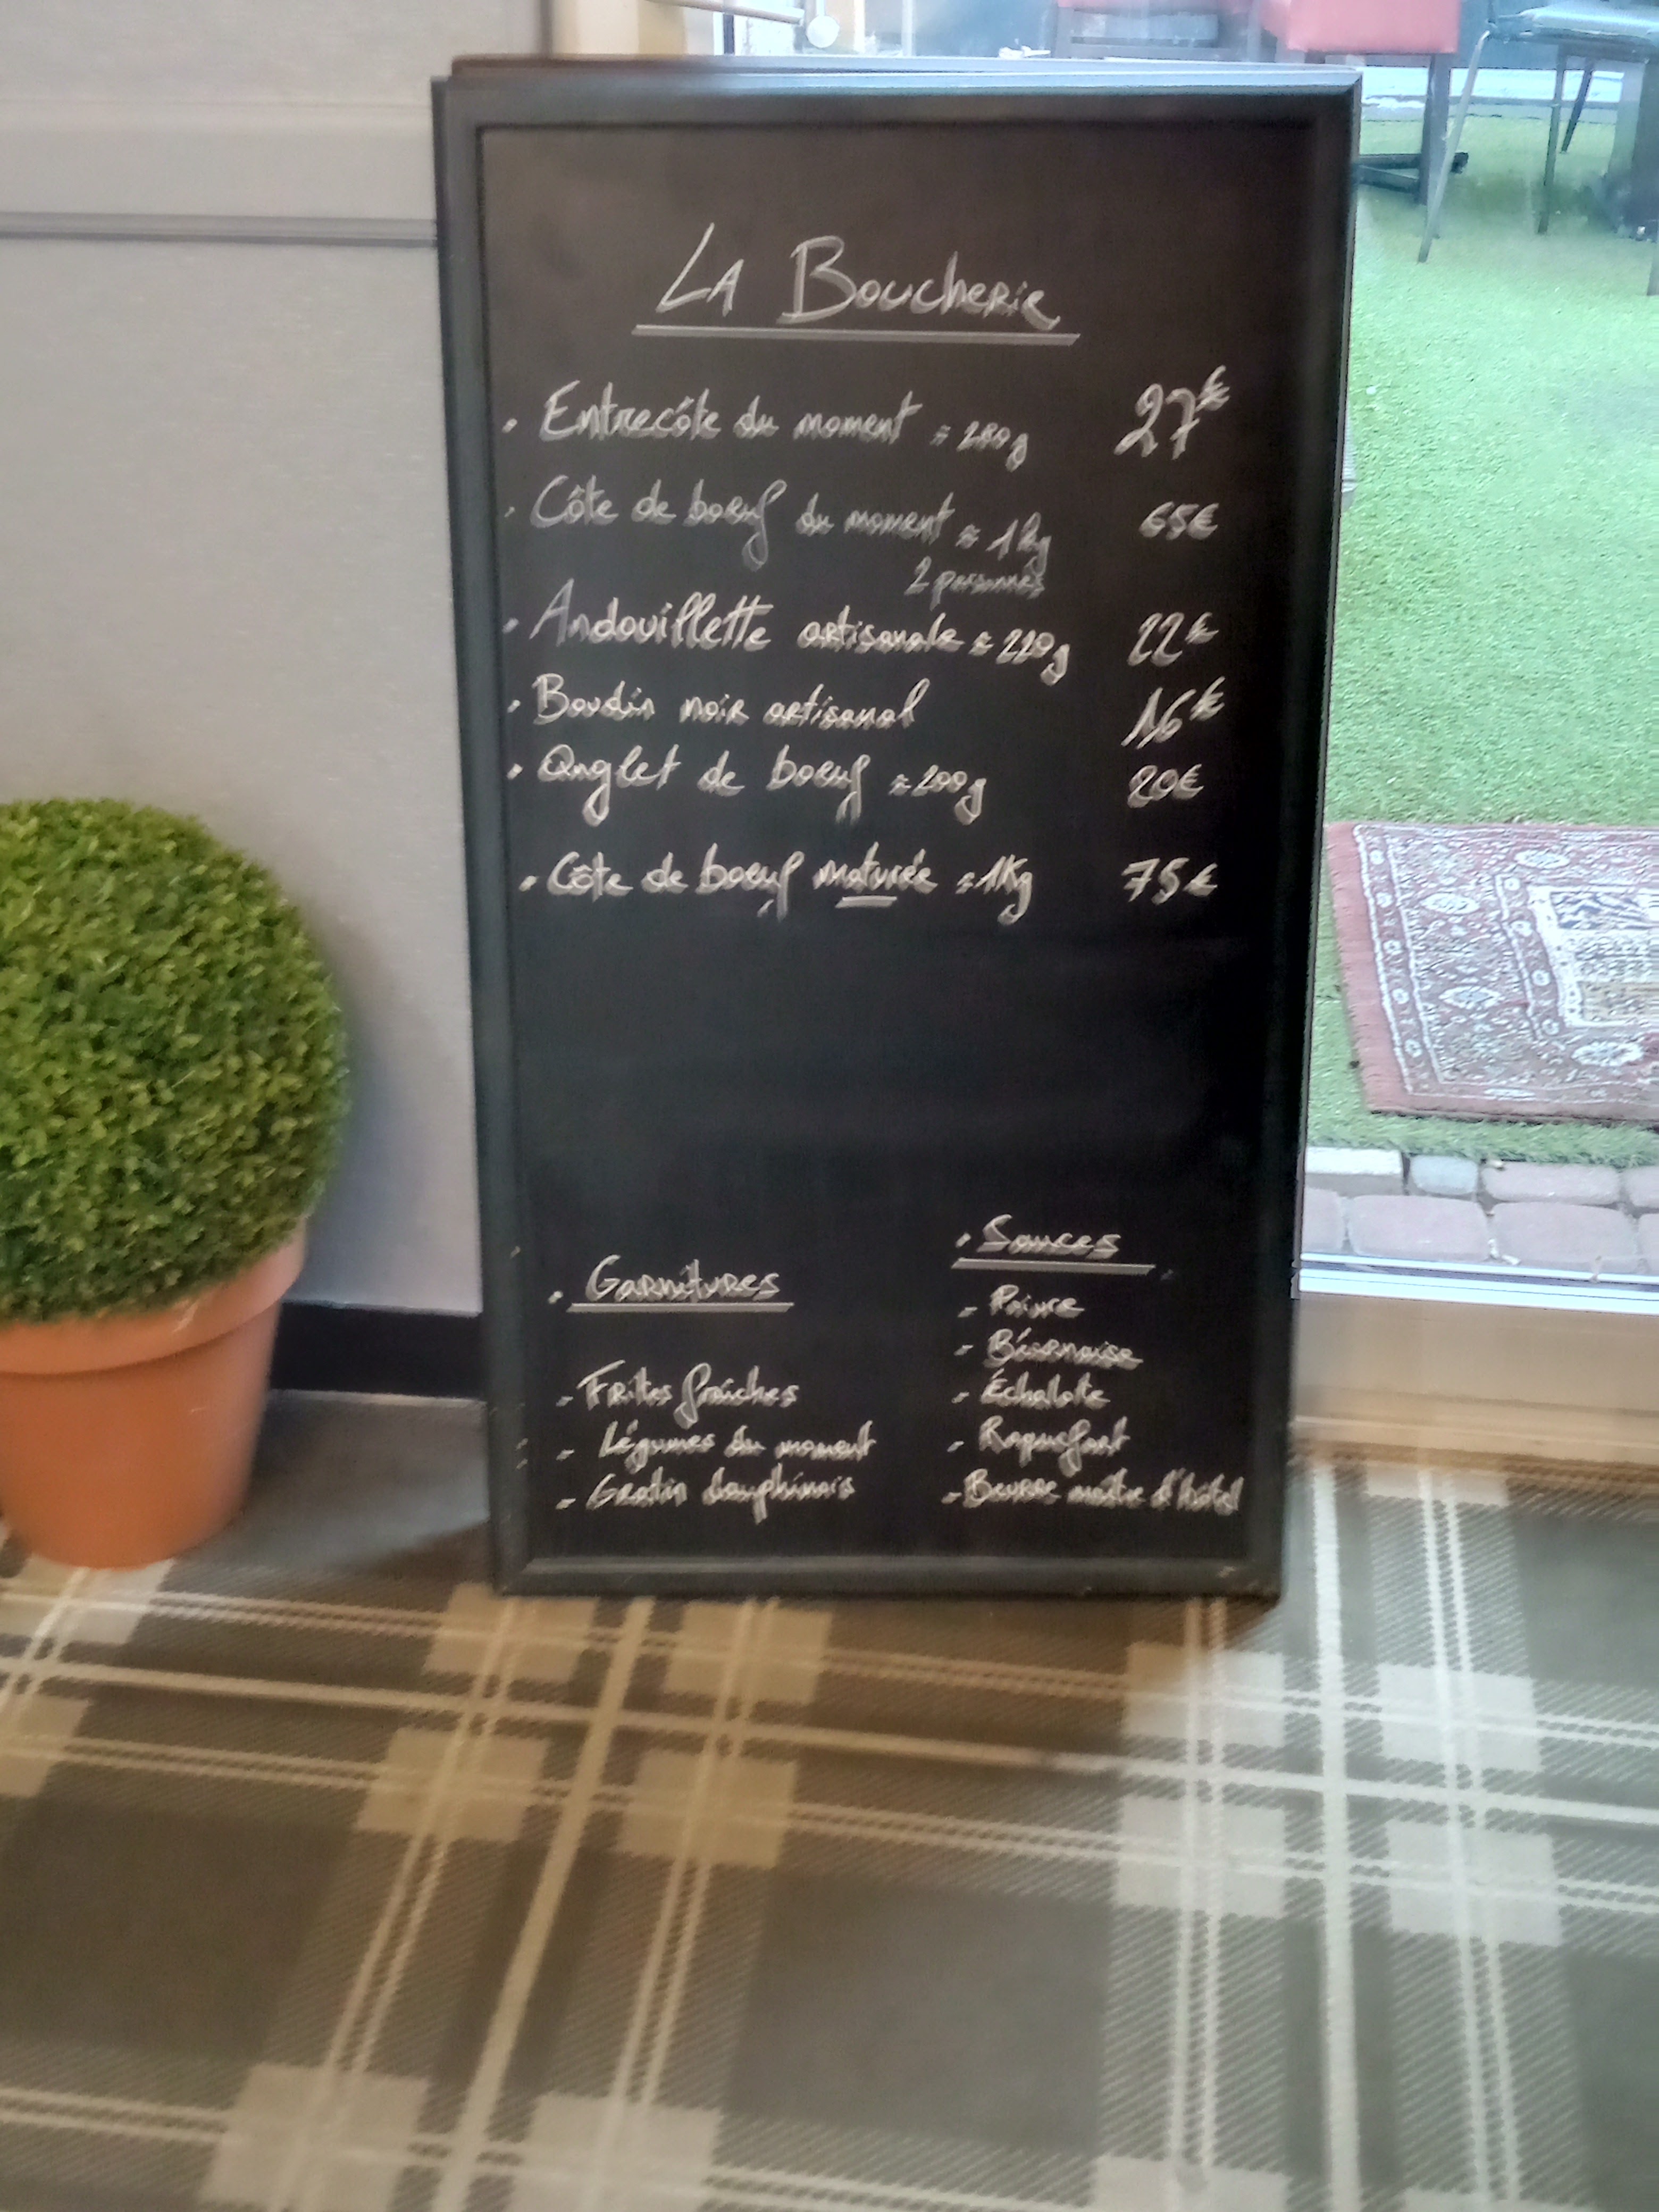 LA Boucherie
• Entrecôte du moment ≈ 280g 27€
• Côte de boeuf du moment ≈ 1kg 65€
2 personnes
• Andouillette artisanale ≈ 220g 22€
• Boudin noir artisanal 16€
• Onglet de boeuf ≈ 200g 20€
• Côte de boeuf maturée ≈ 1Kg 75€
• Garnitures
- Frites fraîches
- Légumes du moment
- Gratin dauphinois
• Sauces
- Poivre
- Béarnaise
- Échalote
- Roquefort
- Beurre maître d'hôtel